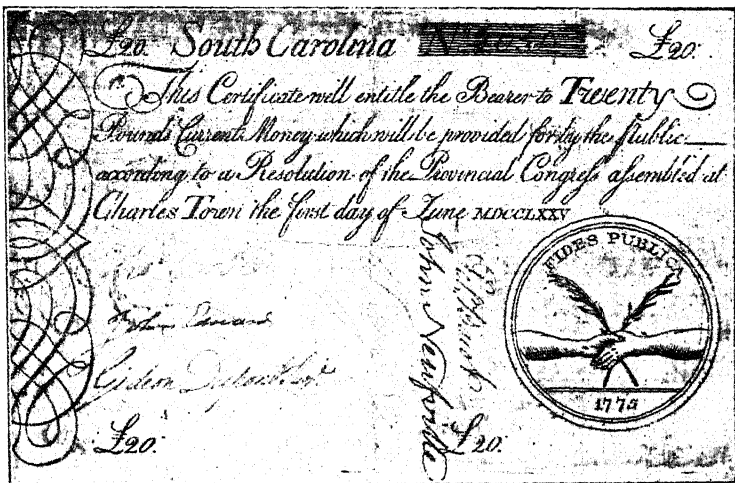 £20: South Carolina No £20:
This Certificate will entitle the Bearer to Twenty
Pounds Current Money which will be provided for by the Public
according to a Resolution of the Provincial Congress assembled at
Charles Town the first day of June MDCCLXXV
FIDES PUBLICA
1775
John Edwards
Gideon
John
£20:
£20: